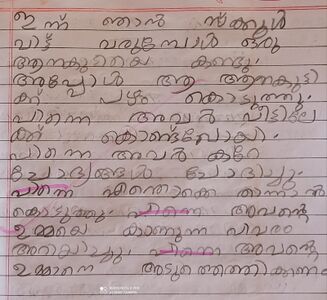 ഇന്ന് ഞാൻ സ്ക്കൂൾ
വിട്ട് വരുമ്പോൾ ഒരു
ആനകുട്ടിയെ കണ്ടു.
അപ്പോൾ ആ ആനകുട്ടി
ക്ക് പഴം കൊടുത്തു.
പിന്നെ അവൻ വീട്ടിലേ
ക്ക് കൊണ്ടുപോയി.
പിന്നെ അവർ കുറേ
ചോദ്യങ്ങൾ ചോദിച്ചു.
പിന്നെ എന്തൊക്കെ
കൊടുത്തു. പിന്നെ അവന്റെ
ഉമ്മയെ കാണുന്ന വിവരം
അറിയിച്ചു. പിന്നെ അവന്റെ
ഉമ്മാനെ അടുത്തെത്തി